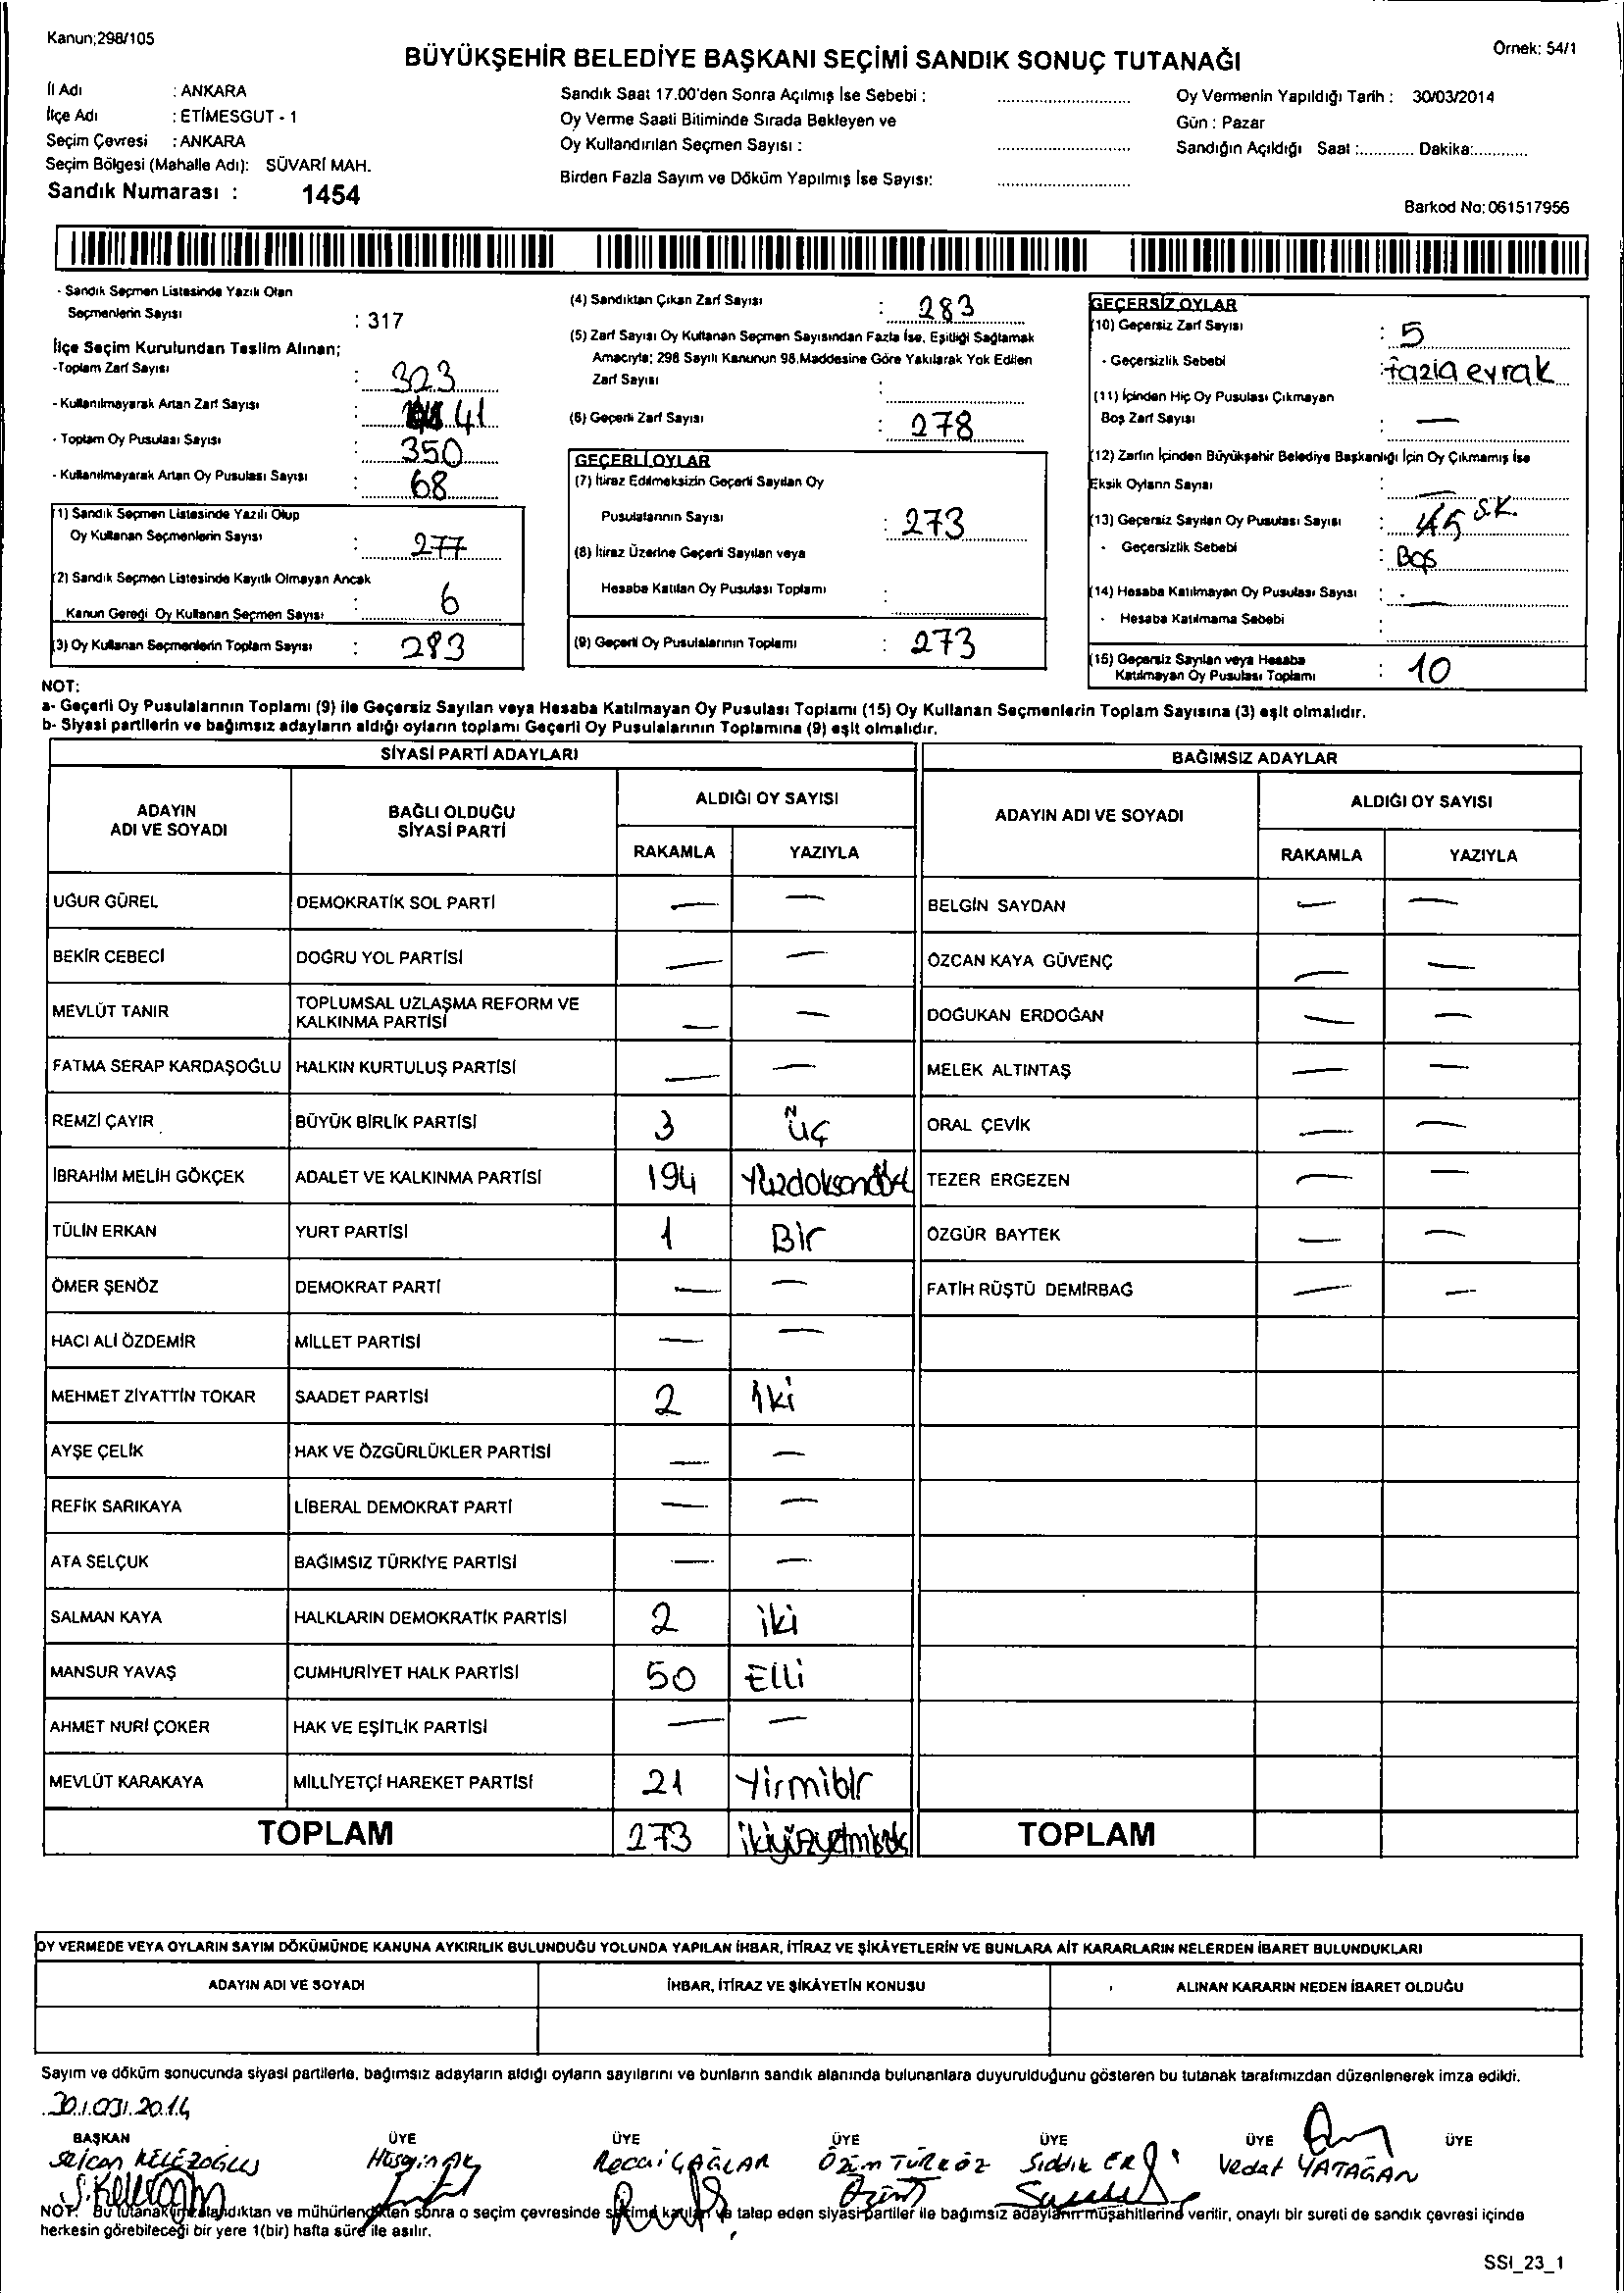 Kanun;298/105
Örnek: 54/1
BÜYÜKŞEHİR BELEDİYE BAŞKANI SEÇİMİ SANDIK SONUÇ TUTANAĞI
İl Adı : ANKARA
İlçe Adı : ETİMESGUT - 1
Seçim Çevresi : ANKARA
Seçim Bölgesi (Mahalle Adı): SÜVARİ MAH.
Sandık Numarası : 1454
Sandık Saat 17.00'den Sonra Açılmış İse Sebebi :
Oy Verme Saati Bitiminde Sırada Bekleyen ve
Oy Kullandırılan Seçmen Sayısı :
Birden Fazla Sayım ve Döküm Yapılmış İse Sayısı:
Oy Vermenin Yapıldığı Tarih : 30/03/2014
Gün : Pazar
Sandığın Açıldığı Saat :............ Dakika:............
Barkod No: 061517956
- Sandık Seçmen Listesinde Yazılı Olan
Seçmenlerin Sayısı : 317
İlçe Seçim Kurulundan Teslim Alınan;
-Toplam Zarf Sayısı : 323
- Kullanılmayarak Artan Zarf Sayısı : 41
- Toplam Oy Pusulası Sayısı : 350
- Kullanılmayarak Artan Oy Pusulası Sayısı : 68
(1) Sandık Seçmen Listesinde Yazılı Olup
Oy Kullanan Seçmenlerin Sayısı : 277
(2) Sandık Seçmen Listesinde Kayıtlı Olmayan Ancak
Kanun Gereği Oy Kullanan Seçmen Sayısı : 6
(3) Oy Kullanan Seçmenlerin Toplam Sayısı : 283
(4) Sandıktan Çıkan Zarf Sayısı : 283
(5) Zarf Sayısı Oy Kullanan Seçmen Sayısından Fazla İse, Eşitliği Sağlamak
Amacıyla; 298 Sayılı Kanunun 98.Maddesine Göre Yakılarak Yok Edilen
Zarf Sayısı :
(6) Geçerli Zarf Sayısı : 278
GEÇERLİ OYLAR
(7) İtiraz Edilmeksizin Geçerli Sayılan Oy
Pusulalarının Sayısı : 273
(8) İtiraz Üzerine Geçerli Sayılan veya
Hesaba Katılan Oy Pusulası Toplamı :
(9) Geçerli Oy Pusulalarının Toplamı : 273
GEÇERSİZ OYLAR
(10) Geçersiz Zarf Sayısı : 5
- Geçersizlik Sebebi : fazla evrak
(11) İçinden Hiç Oy Pusulası Çıkmayan
Boş Zarf Sayısı : —
(12) Zarfın İçinden Büyükşehir Belediye Başkanlığı İçin Oy Çıkmamış İse
Eksik Oyların Sayısı : —
(13) Geçersiz Sayılan Oy Pusulası Sayısı : 5 S.K.
- Geçersizlik Sebebi : Boş
(14) Hesaba Katılmayan Oy Pusulası Sayısı : —
- Hesaba Katılmama Sebebi :
(15) Geçersiz Sayılan veya Hesaba
Katılmayan Oy Pusulası Toplamı : 10
NOT:
a- Geçerli Oy Pusulalarının Toplamı (9) ile Geçersiz Sayılan veya Hesaba Katılmayan Oy Pusulası Toplamı (15) Oy Kullanan Seçmenlerin Toplam Sayısına (3) eşit olmalıdır.
b- Siyasi partilerin ve bağımsız adayların aldığı oyların toplamı Geçerli Oy Pusulalarının Toplamına (9) eşit olmalıdır.
SİYASİ PARTİ ADAYLARI
BAĞIMSIZ ADAYLAR
ADAYIN ADI VE SOYADI
BAĞLI OLDUĞU SİYASİ PARTİ
ALDIĞI OY SAYISI
RAKAMLA YAZIYLA
ADAYIN ADI VE SOYADI
ALDIĞI OY SAYISI
RAKAMLA YAZIYLA
UĞUR GÜREL DEMOKRATİK SOL PARTİ — — BELGİN SAYDAN — —
BEKİR CEBECİ DOĞRU YOL PARTİSİ — — ÖZCAN KAYA GÜVENÇ — —
MEVLÜT TANIR TOPLUMSAL UZLAŞMA REFORM VE KALKINMA PARTİSİ — — DOĞUKAN ERDOĞAN — —
FATMA SERAP KARDAŞOĞLU HALKIN KURTULUŞ PARTİSİ — — MELEK ALTINTAŞ — —
REMZİ ÇAYIR BÜYÜK BİRLİK PARTİSİ 3 üç ORAL ÇEVİK — —
İBRAHİM MELİH GÖKÇEK ADALET VE KALKINMA PARTİSİ 194 Yüzdoksandört TEZER ERGEZEN — —
TÜLİN ERKAN YURT PARTİSİ 1 Bir ÖZGÜR BAYTEK — —
ÖMER ŞENÖZ DEMOKRAT PARTİ — — FATİH RÜŞTÜ DEMİRBAĞ — —
HACI ALİ ÖZDEMİR MİLLET PARTİSİ — —
MEHMET ZİYATTİN TOKAR SAADET PARTİSİ 2 iki
AYŞE ÇELİK HAK VE ÖZGÜRLÜKLER PARTİSİ — —
REFİK SARIKAYA LİBERAL DEMOKRAT PARTİ — —
ATA SELÇUK BAĞIMSIZ TÜRKİYE PARTİSİ — —
SALMAN KAYA HALKLARIN DEMOKRATİK PARTİSİ 2 iki
MANSUR YAVAŞ CUMHURİYET HALK PARTİSİ 50 Elli
AHMET NURİ ÇOKER HAK VE EŞİTLİK PARTİSİ — —
MEVLÜT KARAKAYA MİLLİYETÇİ HAREKET PARTİSİ 21 Yirmibir
TOPLAM 273 TOPLAM
OY VERMEDE VEYA OYLARIN SAYIM DÖKÜMÜNDE KANUNA AYKIRILIK BULUNDUĞU YOLUNDA YAPILAN İHBAR, İTİRAZ VE ŞİKÂYETLERİN VE BUNLARA AİT KARARLARIN NELERDEN İBARET BULUNDUKLARI
ADAYIN ADI VE SOYADI İHBAR, İTİRAZ VE ŞİKÂYETİN KONUSU ALINAN KARARIN NEDEN İBARET OLDUĞU
Sayım ve döküm sonucunda siyasi partilerle, bağımsız adayların aldığı oyların sayılarını ve bunların sandık alanında bulunanlara duyurulduğunu gösteren bu tutanak tarafımızdan düzenlenerek imza edildi.
30/03/2014
BAŞKAN ÜYE ÜYE ÜYE ÜYE ÜYE ÜYE
Selcan KELEZOĞLU Hüseyin AK Recai ÇAĞLAR Özüm TÜRKÖZ Sıddık ER Vedat YATAĞAN
NOT: Bu tutanak imzalandıktan ve mühürlendikten sonra o seçim çevresinde seçime katılan ve talep eden siyasi partiler ile bağımsız adayların müşahitlerine verilir, onaylı bir sureti de sandık çevresi içinde
herkesin görebileceği bir yere 1(bir) hafta süre ile asılır.
SSI_23_1